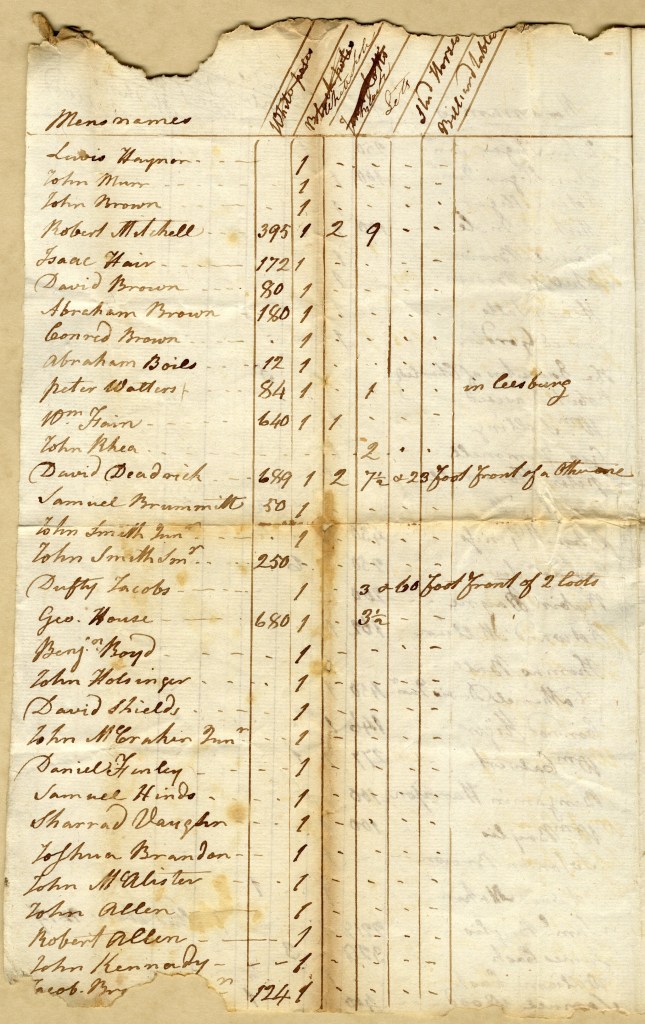 White poles
Black poles
Lots
Stud Horses
Billiard tables
Mens names
Lewis Haynor - - 1 - - - -
John Murr - - 1 - - - -
John Brown - - 1 - - - -
Robert Mitchell 395 1 2 9
Isaac Hair 172 1
David Brown 80 1
Abraham Brown 180 1
Conred Brown 1
Abraham Boils 12 1
Peter Watters 84 1 1 in Leesburg
Wm Fain 640 1 1
John Rhea 2
David Deadrick 689 1 2 7½ & 23 foot front of a
Samuel Brummitt 50 1
John Smith Junr 1
John Smith Snr 250
Dufty Jacobs 1 3 & 60 foot front of 2 Loots
Geo. House 680 1 3½
Benjn Boyd 1
John Holsinger 1
David Shields 1
John McCraken Junr 1
Daniel Finley 1
Samuel Hinds 1
Sharrad Vaughn 1
Joshua Brandon 1
John McAlister 1
John Allen 1
Robert Allen 1
John Kennady 1
Jacob. Br n 124 1